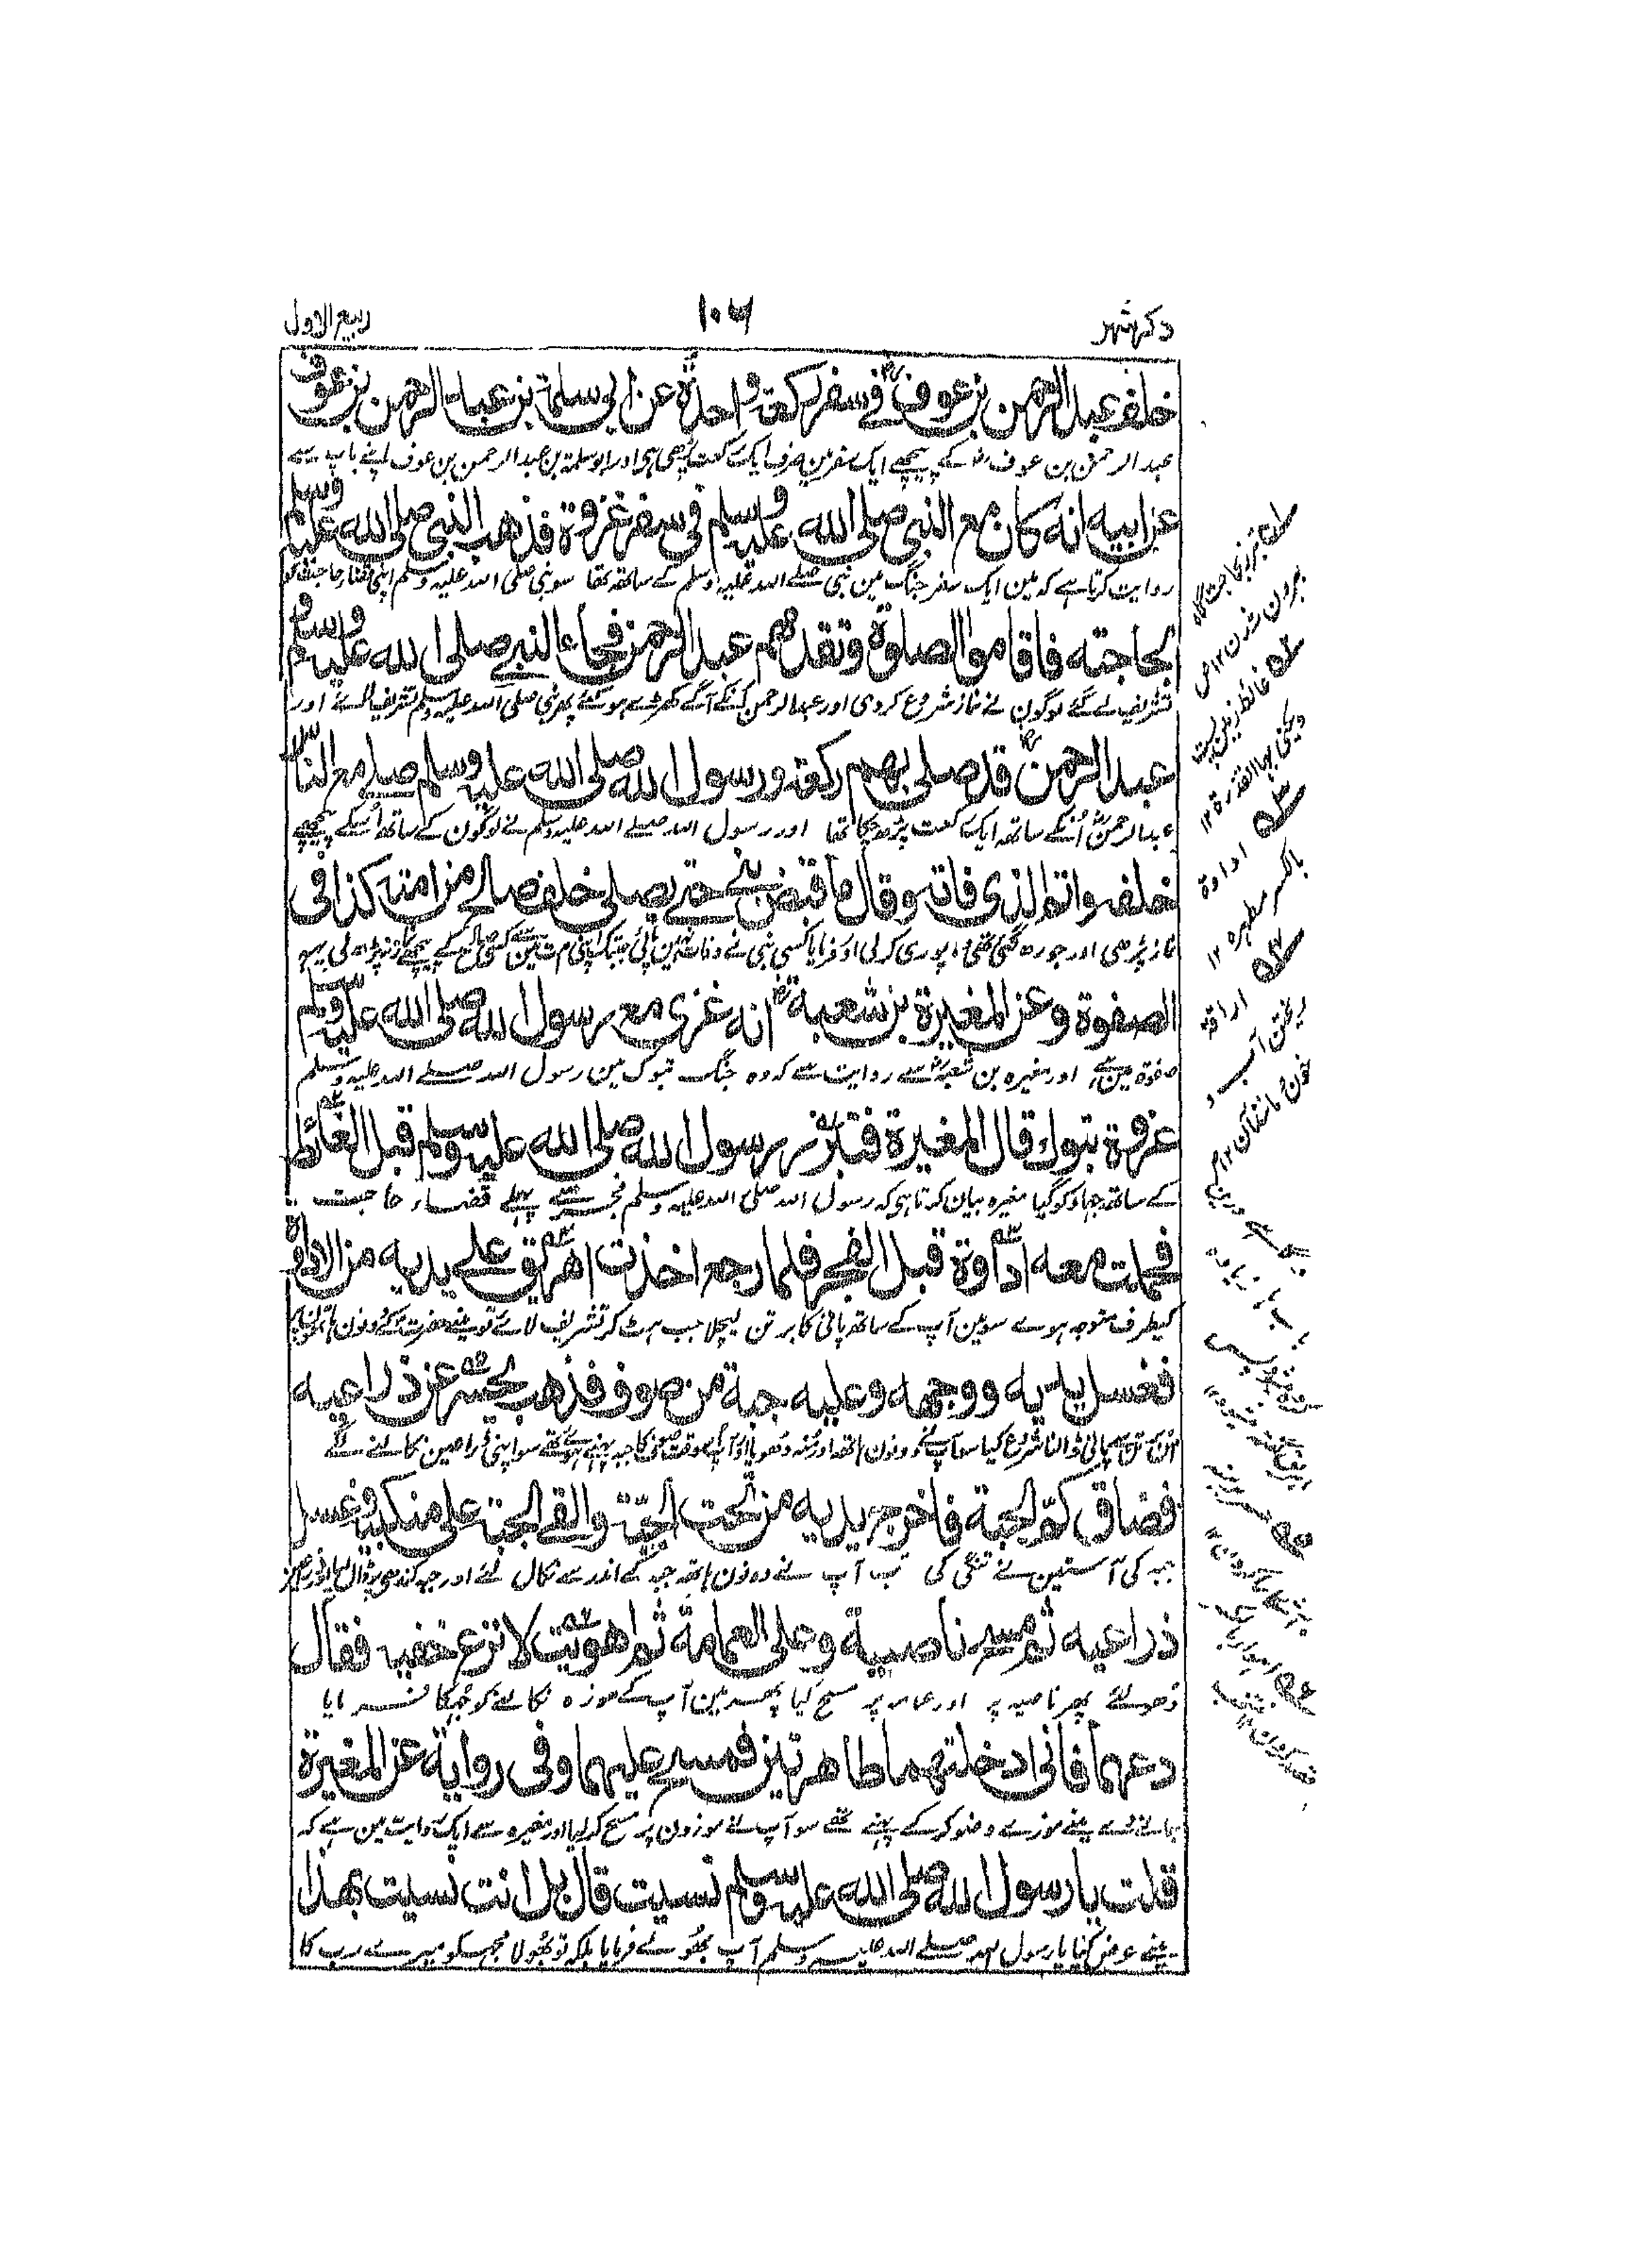 ذکر شہر
۱۰۶
ربیع الاول
خلف عبد الرحمن بن عوف رض في سفر ركعة واحدة عن ابي سلمة بن عبد الرحمن بن عوف
عبد الرحمن بن عوف رض کے پیچھے ایک سفر مین صرف ایک رکعت پڑھی ہی اور ابو سلمہ بن عبد الرحمن بن عوف اپنے باپ سے
عن ابيه انه كان مع النبي صلى الله عليه وسلم في سفر غزوة فذهب النبي صلى الله عليه وسلم
روایت کرتا ہے کہ مین ایک سفر جنگ مین نبی صلے اللہ علیہ وسلم کے ساتھ تھا سو نبی صلی اللہ علیہ وسلم اپنی قضاء حاجت کو
لحاجته فاقاموا الصلوة وتقدمهم عبد الرحمن فجاء النبي صلى الله عليه وسلم و
تشریف لے گئے لوگون نے نماز شروع کر دی اور عبد الرحمن اُنکے آگے کھڑے ہو گئے پھر نبی صلی اللہ علیہ وسلم تشریف لائے اور
عبد الرحمن رض قد صلى بهم ركعة ورسول الله صلى الله عليه وسلم صلے مع الناس
عبد الرحمن رض اُنکے ساتھ ایک رکعت پڑھ چکا تھا اور رسول اللہ صلے اللہ علیہ وسلم نے لوگون کے ساتھ اُسکے پیچھے
خلفه واتم الذى فاته وقال ما قبض نبي حتى يصلي خلف صالح من امته كذا في
نماز پڑھی اور جو رہ گئی تھی، پوری کر لی اور فرمایا کسی نبی نے وفات نہین پائی جبتک اپنی امت مین سے کسی صالح کے پیچھے نماز نہ پڑھ لی یہہ
الصفوة وعن المغيرة بن شعبة رض انه غزى مع رسول الله صلى الله عليه وسلم
صفوة مین ہے، اور مغیرہ بن شعبہ رض سے روایت سے کہ وہ جنگ تبوک مین رسول اللہ صلے اللہ علیہ وسلم
غزوة تبوك قال المغيرة فتبرز رسول الله صلى الله عليه وسلم قبل الغائط
کے ساتھ جہاد کو گیا مغیرہ بیان کرتا ہی کہ رسول اللہ صلی اللہ علیہ وسلم فجر سے پہلے قضاء حاجت
فحملت معه اداوة قبل الفجر فلما رجع اخذت اهريق على يديه من الاداوة
کیطرف متوجہ ہوے سو مین آپ کے ساتھ پانی کا برتن لیچلا جب ہٹ کر تشریف لائے تو مینے حضرت کے دونون ہاتھون پر
فغسل يديه ووجهه وعليه جبة من صوف فذهب يحسر عن ذراعيه
اُس برتن سے پانی ڈالنا شروع کیا سو آپ نے دونون ہاتھ اور مُنہ دھویا اور آپ اُسوقت صوف کا جبہ پہنے ہوئے تھے سو اپنی ذراعین نکالنے لگے
فضاق كم الجبة فاخرج يديه من تحت الجبة والقى الجبة على منكبيه وغسل
جبہ کی آستین نے تنگی کی تب آپ نے دونون ہاتھ جبہ کے اندر سے نکال لئے اور جبہ کندھی پر ڈال لیا اور ذراعین
ذراعيه ثم مسح بناصيته وعلى العمامة ثم اهويت لانزع خفيه فقال
دھولئے پھر ناصیہ پر اور عمامہ پر مسح کیا پھر مین آپ کے موزہ نکالنے کو جُہکا فرمایا
دعهما فاني ادخلتهما طاهرتين فمسح عليهما وفي رواية عن المغيرة
جانے دے مینے موزے وضو کر کے پہنے تھے سو آپ نے موزون پر مسح کر لیا اور مغیرہ سے ایک روایت مین ہے کہ
قلت يا رسول الله صلى الله عليه وسلم نسيت قال بل انت نسيت بهذا
مینے عرض کیا یا رسول اللہ صلے اللہ علیہ وسلم آپ بھولے فرمایا بلکہ تو بھولا مجہکو میرے رب کا
بیرون شدن ۱۲ ص
اداوة
بالکسر مطہرہ ۱۲
اراقة
ریختن آب و
خون و مانند آن ۱۲